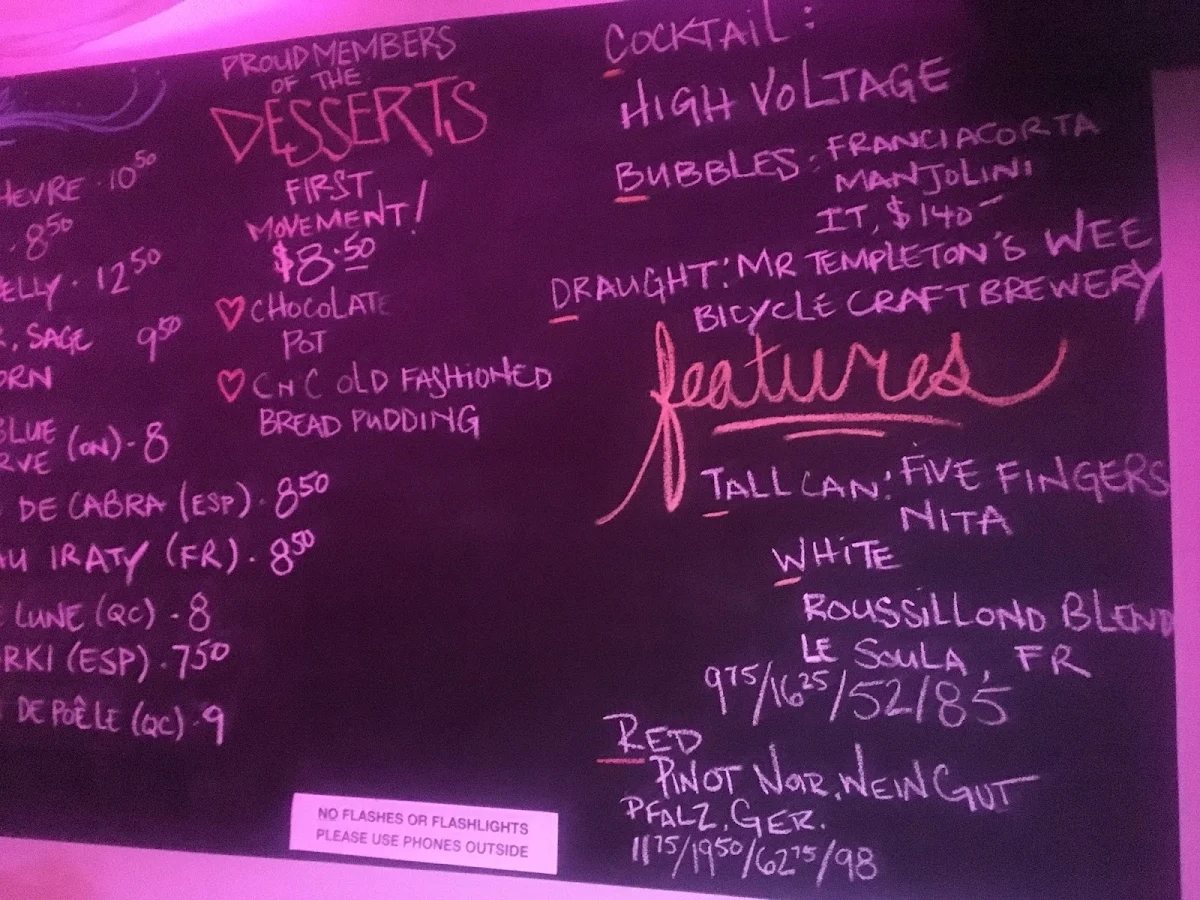 HEVRE · 10 50
· 8 50
ELLY · 12 50
, SAGE 9 50
ORN
BLUE (ON) · 8
RVE
DE CABRA (ESP) · 8 50
AU IRATY (FR) · 8 50
LUNE (QC) · 8
RKI (ESP) · 7 50
DE POÊLE (QC) · 9
PROUD MEMBERS
OF THE
DESSERTS
FIRST
MOVEMENT!
$8.50
♡ CHOCOLATE
POT
♡ CNC OLD FASHIONED
BREAD PUDDING
COCKTAIL:
HIGH VOLTAGE
BUBBLES: FRANCIACORTA
MANJOLINI
IT, $140-
DRAUGHT: MR TEMPLETON'S WEE
BICYCLE CRAFT BREWERY
features
TALL CAN: FIVE FINGERS
NITA
WHITE
ROUSSILLOND BLEND
LE SOULA, FR
9 75/16 25/52/85
RED
PINOT NOIR, WEINGUT
PFALZ, GER.
11 75/19 50/62 75/98
NO FLASHES OR FLASHLIGHTS
PLEASE USE PHONES OUTSIDE